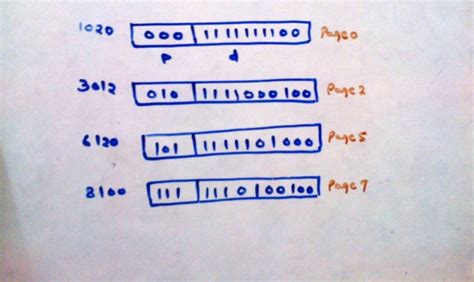 1020 000 1111111100 Page 0
p d
3012 010 1111000100 Page 2
6120 101 1111101000 Page 5
8100 111 1110100100 Page 7